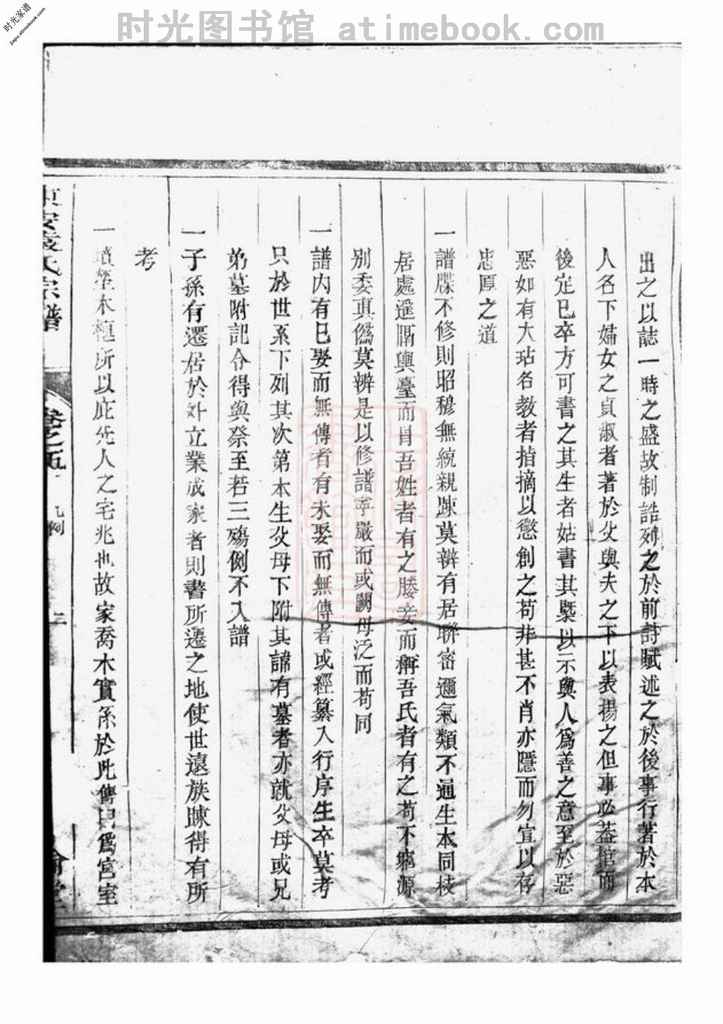 时光图书馆 atimebook.com
时光家谱
jiapu.atimebook.com
出之以誌一時之盛故制誥列之於前詩賦述之於後事行著於本
人名下婦女之貞淑者著於父與夫之下以表揚之但事必葢棺而
後定已卒方可書之其生者姑書其槩以示與人爲善之意至於惡
惡如有大玷名教者指摘以懲創之苟非甚不肖亦隱而勿宣以存
忠厚之道
一譜牒不修則昭穆無統親踈莫辨有居聯密邇氣類不通生本同枝
居處遥隔輿臺而冒吾姓者有之媵妾而稱吾氏者有之苟不窮源
别委真僞莫辨是以修譜寧嚴而或闕毋泛而苟同
一譜内有已娶而無傳者有未娶而無傳者或經纂入行序生卒莫考
只於世系下列其次第本生父母下附其諱有墓者亦就父母或兄
弟墓附記令得與祭至若三殤例不入譜
一子孫有遷居於外立業成家者則書所遷之地使世遠族踈得有所
考
一墳塋木植所以庇先人之宅兆也故家喬木實系於此傳曰爲宮室
東安袁氏宗譜
卷之五
凡例
三
堂